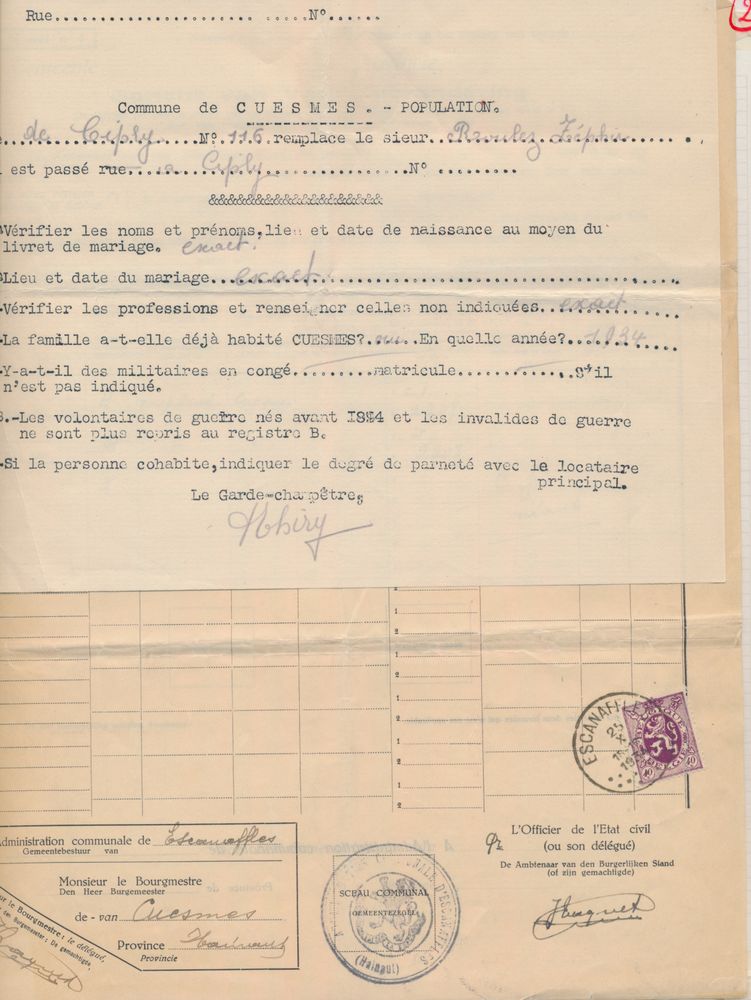 Rue..............................N°......
2
Commune de C U E S M E S . - POPULATION.
de Ciply N° 116 remplace le sieur Roulez Zéphir
est passé rue a Ciply N°
Vérifier les noms et prénoms,lieu et date de naissance au moyen du
livret de mariage. exact.
Lieu et date du mariage exact.
Vérifier les professions et renseigner celles non indiquées exact
La famille a-t-elle déjà habité CUESMES? oui En quelle année? 1934
Y-a-t-il des militaires en congé.........matricule.............S'il
n'est pas indiqué.
.-Les volontaires de guerre nés avant 1894 et les invalides de guerre
ne sont plus repris au registre B.
Si la personne cohabite,indiquer le degré de parneté avec le locataire
principal.
Le Garde-champêtre,
Thiry
1
2
1
2
1
2
1
2
1
2
ESCANAFFLES
BELGIQUE
BELGIE
40 40
dministration communale de Escanaffles
Gemeentebestuur van
Monsieur le Bourgmestre
Den Heer Burgemeester
de - van Cuesmes
Province Hainaut
Provincie
ur le Bourgmestre : le délégué,
den Burgemeester ; De gemachtigde,
SCEAU COMMUNAL
GEMEENTEZEGEL
D'ESCANAFFLES
(Hainaut)
L'Officier de l'Etat civil
(ou son délégué)
De Ambtenaar van den Burgerlijken Stand
(of zijn gemachtigde)